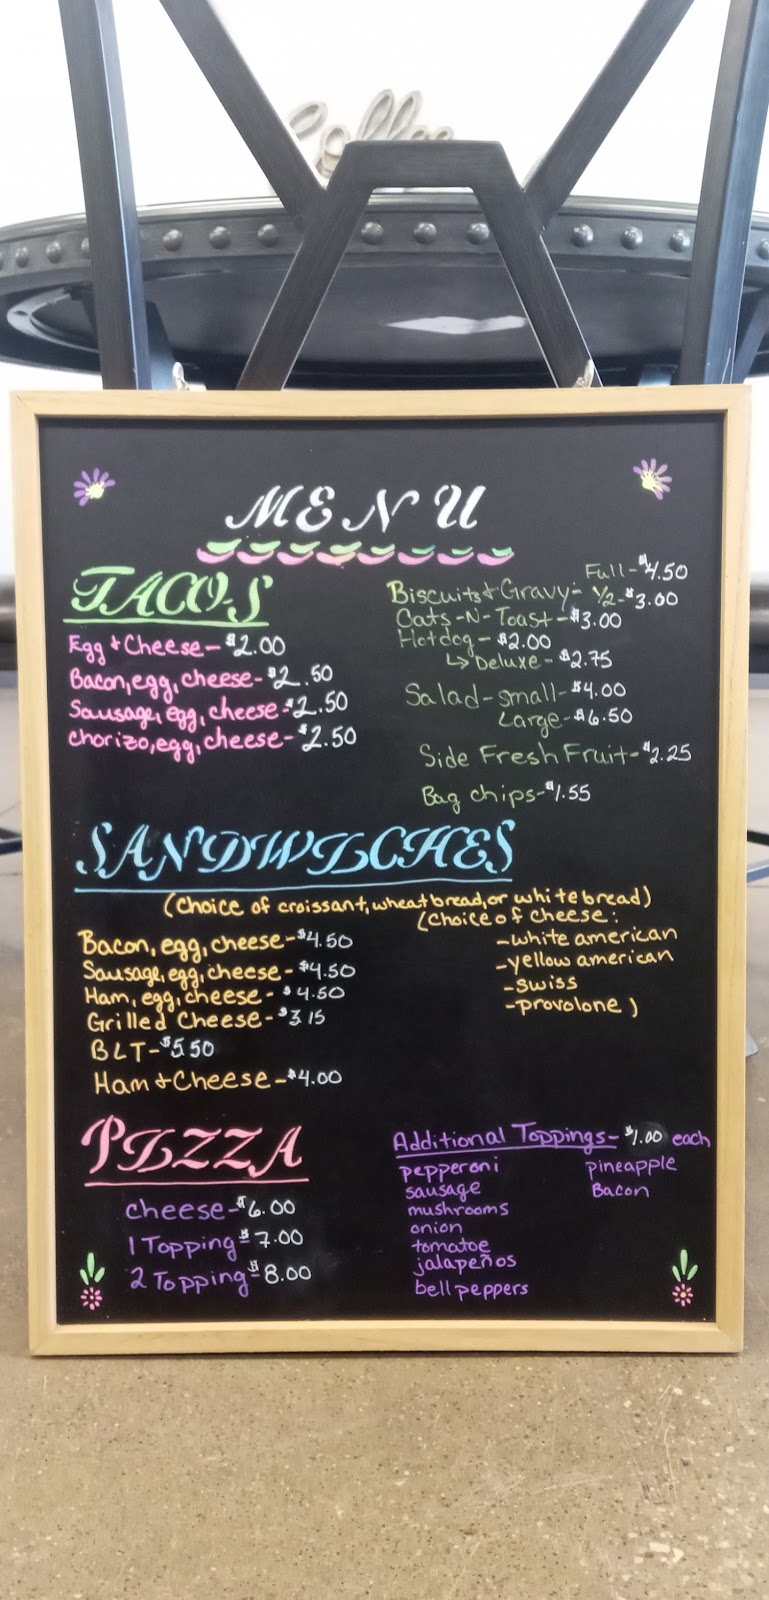 Coffee
MENU
TACOS
Egg + Cheese - $2.00
Bacon, egg, cheese - $2.50
Sausage, egg, cheese - $2.50
chorizo, egg, cheese - $2.50
Full - $4.50
Biscuits + Gravy - 1/2 - $3.00
Oats -N- Toast - $3.00
Hotdog - $2.00
↳ Deluxe - $2.75
Salad - small - $4.00
Large - $6.50
Side Fresh Fruit - $2.25
Bag chips - $1.55
SANDWICHES
(choice of croissant, wheat bread, or white bread)
(choice of cheese:
- white american
- yellow american
- swiss
- provolone)
Bacon, egg, cheese - $4.50
Sausage, egg, cheese - $4.50
Ham, egg, cheese - $4.50
Grilled Cheese - $3.15
BLT - $5.50
Ham + Cheese - $4.00
PIZZA
cheese - $6.00
1 Topping - $7.00
2 Topping - $8.00
Additional Toppings - $1.00 each
pepperoni
sausage
mushrooms
onion
tomatoe
jalapeños
bell peppers
pineapple
Bacon